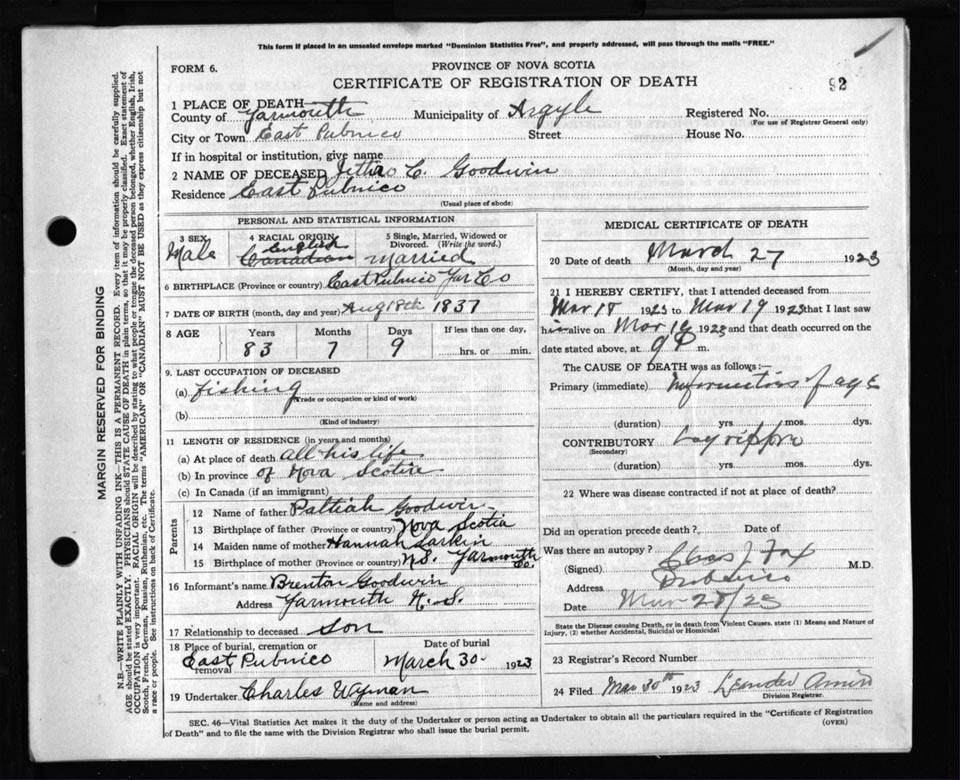 This form if placed in an unsealed envelope marked "Dominion Statistics Free", and properly addressed, will pass through the mails "FREE."
FORM 6.
PROVINCE OF NOVA SCOTIA
CERTIFICATE OF REGISTRATION OF DEATH
92
1 PLACE OF DEATH
County of Yarmouth Municipality of Argyle Registered No.
(For use of Registrar General only)
City or Town East Pubnico Street House No.
If in hospital or institution, give name
2 NAME OF DECEASED Jethro C. Goodwin
Residence East Pubnico
(Usual place of abode)
PERSONAL AND STATISTICAL INFORMATION
3 SEX 4 RACIAL ORIGIN 5 Single, Married, Widowed or Divorced. (Write the word.)
Male English Canadian Married
6 BIRTHPLACE (Province or country) East Pubnico Yar Co
7 DATE OF BIRTH (month, day and year) Aug 18th 1837
8 AGE Years Months Days If less than one day,
83 7 9 hrs. or min.
9. LAST OCCUPATION OF DECEASED
(a) Fishing
(Trade or occupation or kind of work)
(b)
(Kind of industry)
11 LENGTH OF RESIDENCE (in years and months)
(a) At place of death all his life
(b) In province of Nova Scotia
(c) In Canada (if an immigrant)
Parents
12 Name of father Goodwin
13 Birthplace of father (Province or country) Nova Scotia
14 Maiden name of mother Hannah Larkin
15 Birthplace of mother (Province or country) N.S. Yarmouth Co.
16 Informant's name Brenton Goodwin
Address Yarmouth N.S.
17 Relationship to deceased Son
18 Place of burial, cremation or removal Date of burial
East Pubnico March 30 1923
19 Undertaker Charles Wyman
(Name and address)
MEDICAL CERTIFICATE OF DEATH
20 Date of death March 27 1923
(Month, day and year)
21 I HEREBY CERTIFY, that I attended deceased from
Mar 18 1923 to Mar 19 1923 that I last saw
him alive on Mar 19 1923 and that death occurred on the
date stated above, at 9 P m.
The CAUSE OF DEATH was as follows:—
Primary (immediate) of age
(duration) yrs. mos. dys.
CONTRIBUTORY
(Secondary)
(duration) yrs. mos. dys.
22 Where was disease contracted if not at place of death?
Did an operation precede death? Date of
Was there an autopsy?
(Signed) Chas J Fox M.D.
Address Pubnico
Date Mar 28/23
State the Disease causing Death, or in death from Violent Causes, state (1) Means and Nature of
Injury, (2) whether Accidental, Suicidal or Homicidal
23 Registrar's Record Number
24 Filed Mar 30th 1923 Leander
Division Registrar.
SEC. 46—Vital Statistics Act makes it the duty of the Undertaker or person acting as Undertaker to obtain all the particulars required in the "Certificate of Registration
of Death" and to file the same with the Division Registrar who shall issue the burial permit.
(OVER)
MARGIN RESERVED FOR BINDING
N.B.—WRITE PLAINLY WITH UNFADING INK—THIS IS A PERMANENT RECORD. Every item of information should be carefully supplied.
AGE should be stated EXACTLY. PHYSICIANS should STATE CAUSE OF DEATH in plain terms, so that it may be properly classified. Exact statement of
OCCUPATION is very important. RACIAL ORIGIN will be described by stating to what people or tongue the deceased person belonged, whether English, Irish,
Scotch, French, German, Russian, Ruthenian, etc. The terms "AMERICAN" OR "CANADIAN" MUST NOT BE USED as they express citizenship but not
a race or people. See instructions on back of Certificate.